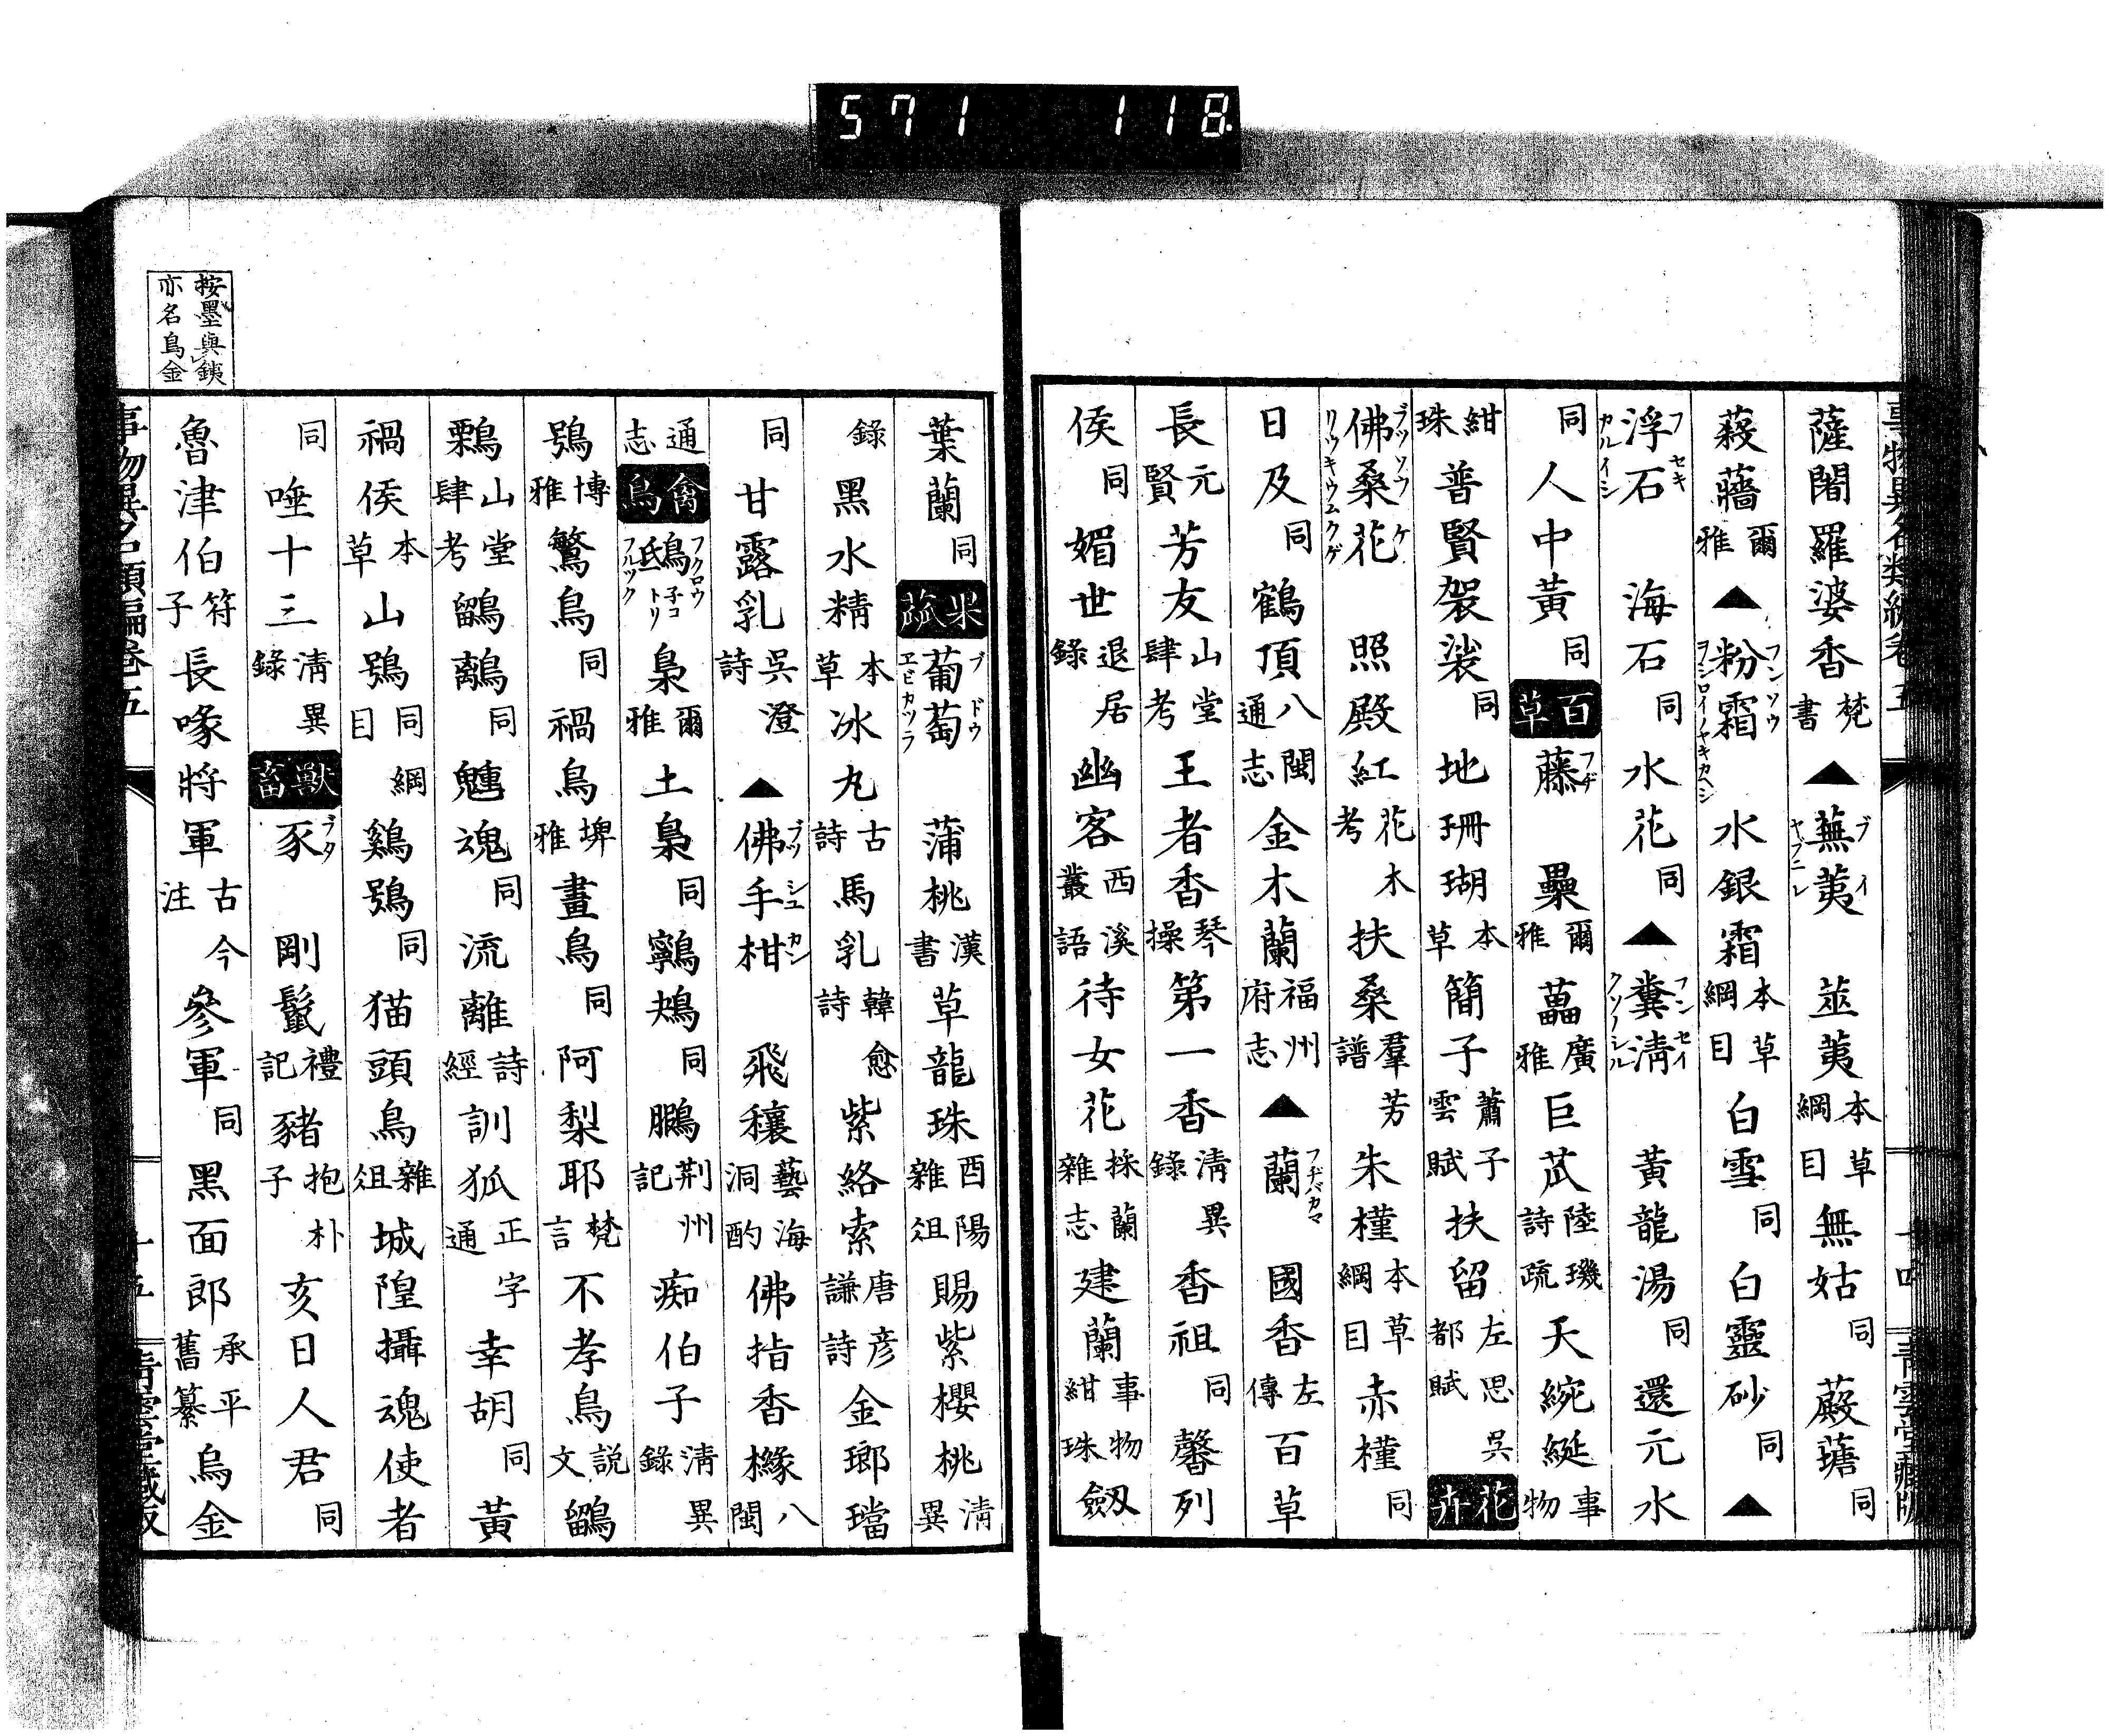 571 118
事物異名類編卷五
薩闍羅婆香梵書▲蕪荑ブイヤブニレ 莁荑本草綱目無姑同蔱蘠同
蔱蘠爾雅▲粉霜フンソウヲシロイノヤキカヘシ水銀霜本草綱目白雪同白靈砂同▲
浮石フセキカルイシ 海石同水花同▲糞淸フンセイクソノシル 黃龍湯同還元水
同人中黃同百草藤フヂ 櫐爾雅藟廣雅巨苽陸璣詩疏天綩綖事物
紺珠普賢袈裟同地珊瑚本草簡子蕭子雲賦扶留左思吳都賦花卉
佛桑花ブツソウケリウキウムクゲ 照殿紅花木考扶桑羣芳譜朱槿本草綱目赤槿同
日及同鶴頂八閩通志金木蘭福州府志▲蘭フヂバカマ 國香左傳百草
長元賢芳友山堂肆考王者香琴操第一香淸異錄香祖同馨列
侯同媚世退居錄幽客西溪叢語待女花採蘭雜志建蘭事物紺珠劔
葉蘭同果蓏葡萄ブドウヱビカツラ 蒲桃漢書草龍珠酉陽雜俎賜紫櫻桃淸異
錄黑水精本草冰丸古詩馬乳韓愈詩紫絡索唐彦謙詩金瑯璫
同甘露乳吳澄詩▲佛手柑ブツシユカン 飛穰藝海洞酌佛指香櫞八閩
通志禽鳥鴟フクロウフルツク 梟爾雅土梟同鸋鴂同鵩荆州記痴伯子淸異錄
鴞博雅鷔鳥同禍鳥埤雅畫鳥同阿梨耶梵言不孝鳥說文鶹
鷅山堂肆考鶹離同魑魂同流離詩經訓狐正字通幸胡同黃
禍侯本草山鴞同綱目鷄鴞同猫頭鳥雜俎城隍攝魂使者
同唾十三淸異錄獸畜豕ブタ 剛鬣禮記豬抱朴子亥日人君同
魯津伯符子長喙將軍古今注參軍同黑面郎承平舊纂烏金
按墨與銕
亦名烏金
事物異名類編卷五
十五
青雲堂藏版